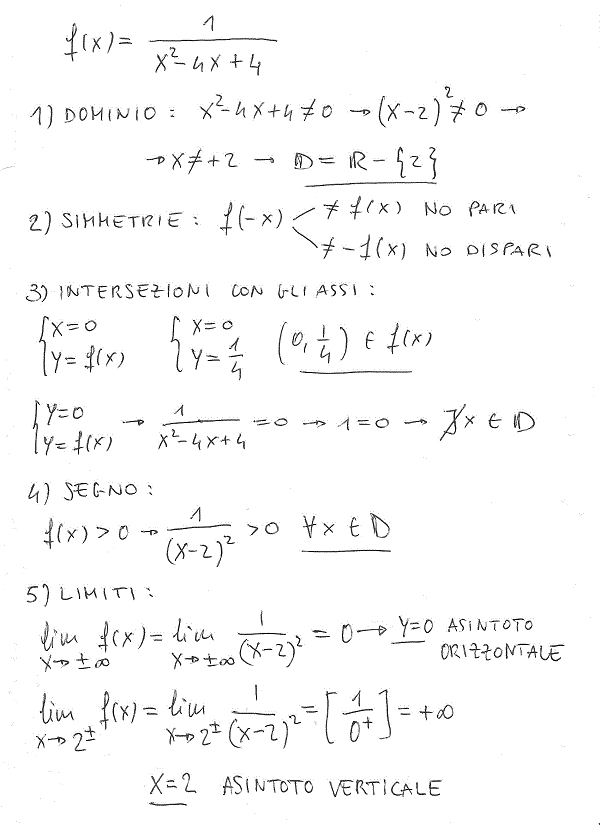 f(x) = 1 / (x² - 4x + 4)
1) DOMINIO : x² - 4x + 4 ≠ 0 → (x-2)² ≠ 0 →
→ x ≠ +2 → D = R - {2}
2) SIMMETRIE : f(-x) ≠ f(x) NO PARI
≠ -f(x) NO DISPARI
3) INTERSEZIONI CON GLI ASSI :
{ x = 0 { x = 0
{ y = f(x) { y = 1/4 (0, 1/4) ∈ f(x)
{ y = 0
{ y = f(x) → 1 / (x² - 4x + 4) = 0 → 1 = 0 → ∄ x ∈ D
4) SEGNO :
f(x) > 0 → 1 / (x-2)² > 0 ∀ x ∈ D
5) LIMITI :
lim x→±∞ f(x) = lim x→±∞ 1 / (x-2)² = 0 → y = 0 ASINTOTO
ORIZZONTALE
lim x→2± f(x) = lim x→2± 1 / (x-2)² = [1 / 0⁺] = +∞
x = 2 ASINTOTO VERTICALE